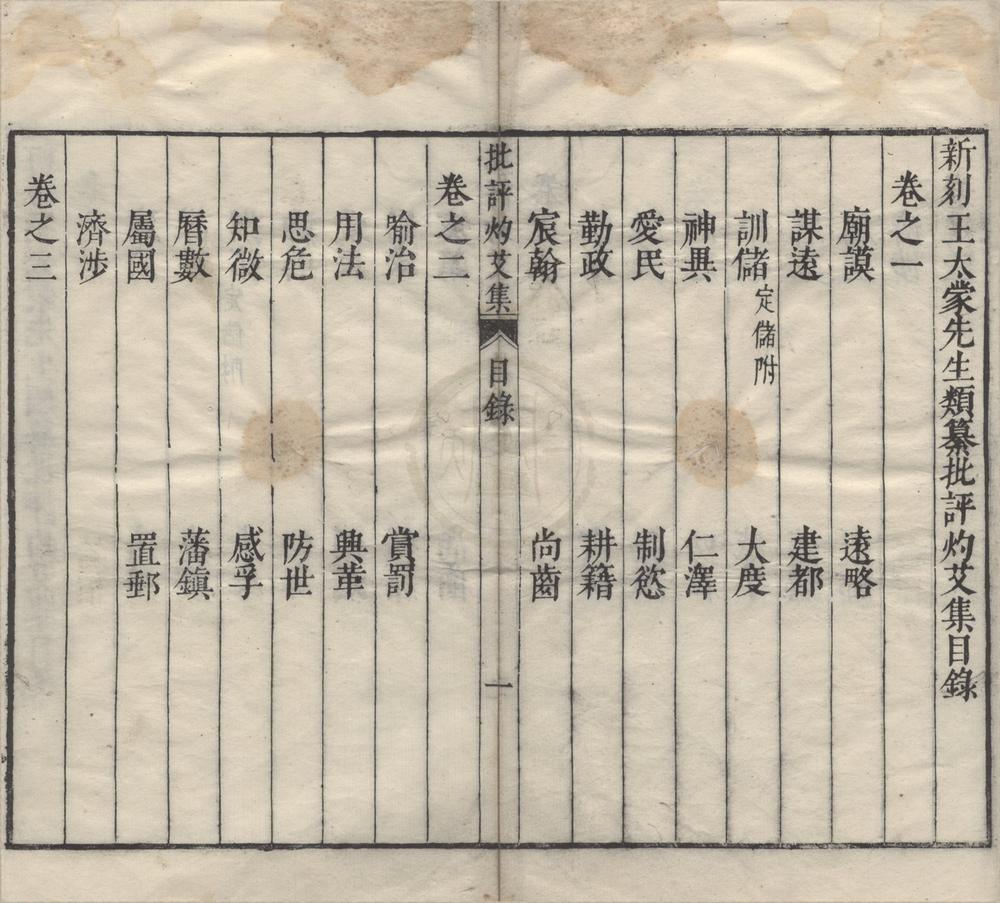 新刻王太蒙先生類纂批評灼艾集目錄
卷之一
廟謨　遠略
謀遠　建都
訓儲定儲附　大度
神異　仁澤
愛民　制慾
勤政　耕籍
宸翰　尚齒
批評灼艾集　目錄　一
卷之二
喻治　賞罰
用法　興革
思危　防世
知微　感孚
曆數　藩鎮
屬國　置郵
濟涉
卷之三